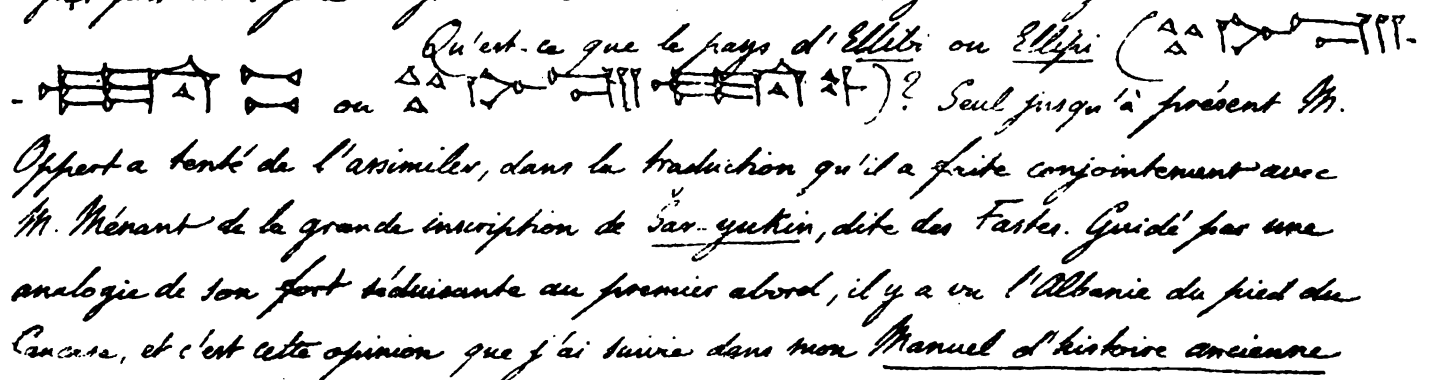 Qu'est-ce que le pays d'Ellibi ou Ellipi (
ou )? Seul jusqu'à présent M.
Oppert a tenté de l'assimiler, dans la traduction qu'il a faite conjointement avec
M. Ménant de la grande inscription de Šar-yukin, dite des Fastes. Guidé par une
analogie de son fort séduisante au premier abord, il y a vu l'Albanie du pied du
Caucase, et c'est cette opinion que j'ai suivie dans mon Manuel d'histoire ancienne